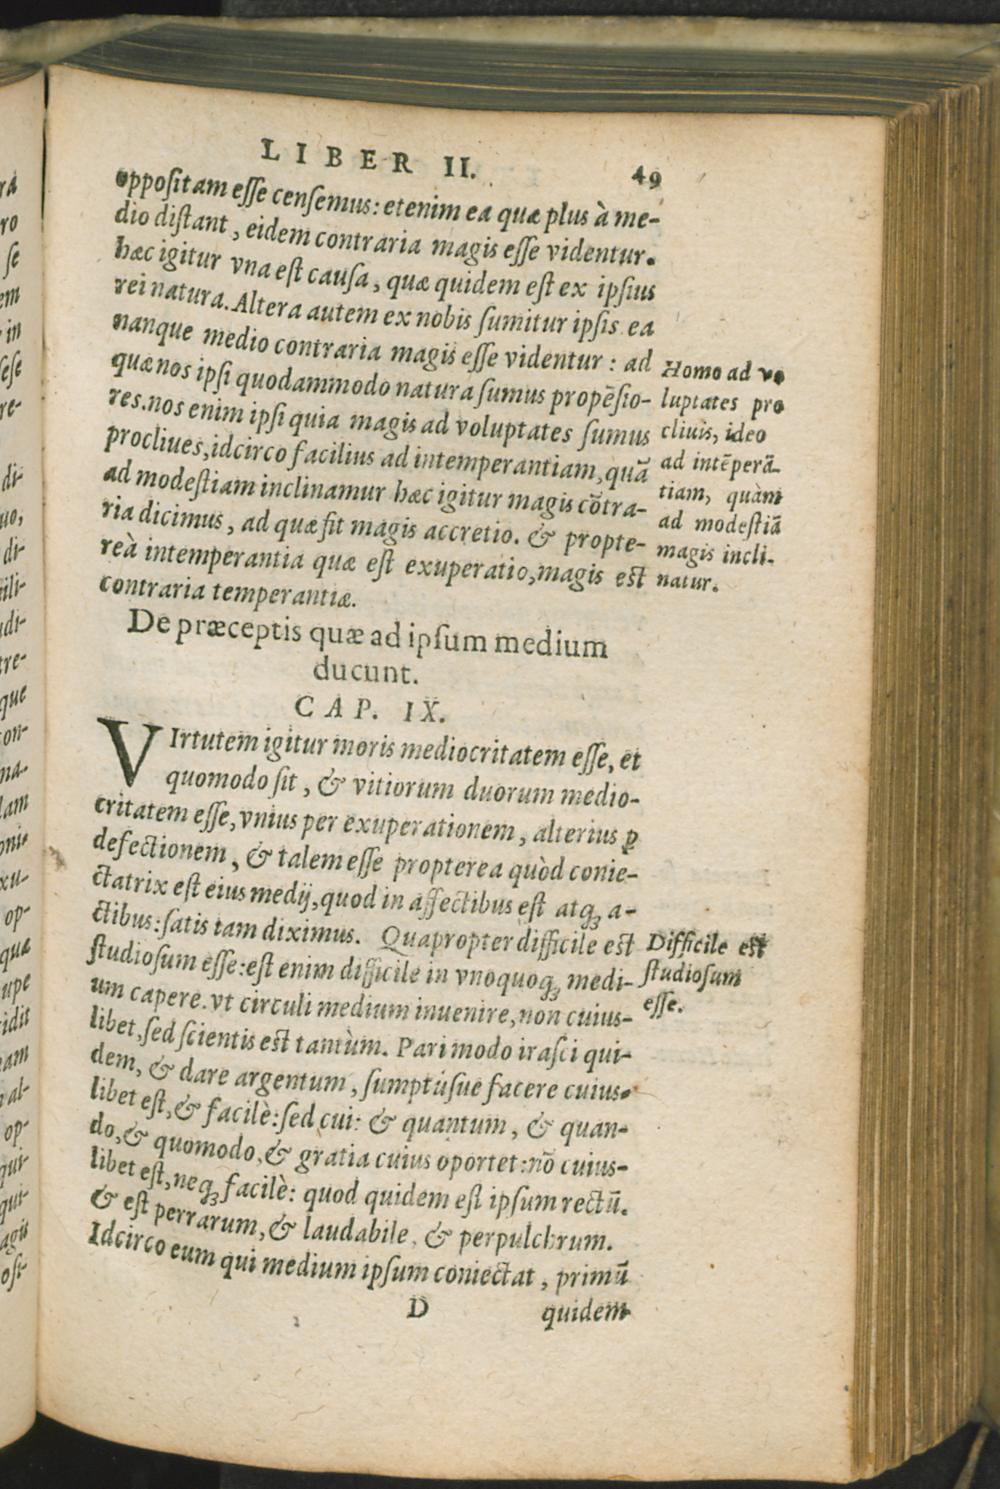 LIBER II. 49
oppositam esse censemus: etenim ea quæ plus à me-
dio distant, eidem contraria magis esse videntur.
hæc igitur vna est causa, quæ quidem est ex ipsius
rei natura. Altera autem ex nobis sumitur ipsis ea
nanque medio contraria magis esse videntur: ad
quæ nos ipsi quodammodo natura sumus propẽsio-
res. nos enim ipsi quia magis ad voluptates sumus
procliues, idcirco facilius ad intemperantiam, quã
ad modestiam inclinamur hæc igitur magis cõtra-
ria dicimus, ad quæ fit magis accretio. & propte-
reà intemperantia quæ est exuperatio, magis est
contraria temperantiæ.
Homo ad vo
luptates pro
cliuis, ideo
ad intẽperã-
tiam, quàm
ad modestiã
magis incli-
natur.
De præceptis quæ ad ipsum medium
ducunt.
CAP. IX.
VIrtutem igitur moris mediocritatem esse, et
quomodo sit, & vitiorum duorum medio-
critatem esse, vnius per exuperationem, alterius ꝑ
defectionem, & talem esse propterea quòd conie-
ctatrix est eius medij, quod in affectibus est atqꝫ a-
ctibus: satis iam diximus. Quapropter difficile est
studiosum esse: est enim difficile in vnoquoqꝫ medi-
um capere. vt circuli medium inuenire, non cuius-
libet, sed scientis est tantùm. Pari modo irasci qui-
dem, & dare argentum, sumptúsue facere cuius-
libet est, & facilè: sed cui: & quantum, & quan-
do, & quomodo, & gratia cuius oportet: nõ cuius-
libet est, neqꝫ facilè: quod quidem est ipsum rectũ.
& est perrarum, & laudabile, & perpulchrum.
Idcirco eum qui medium ipsum coniectat, primũ
Difficile est
studiosum
esse.
D quidem